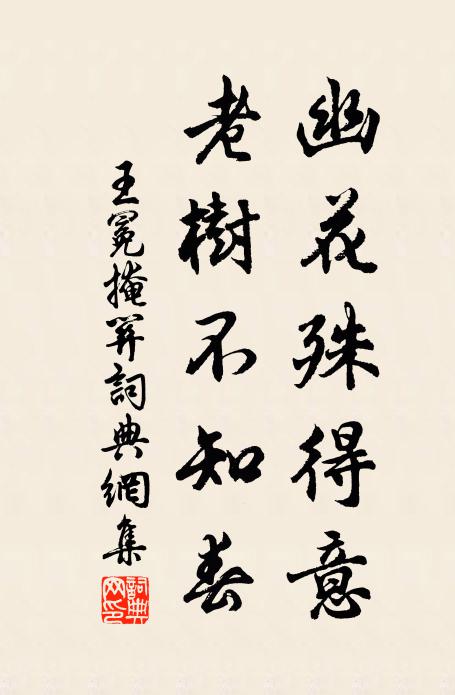 幽花殊得意
老樹不知春
王冕掩關詞典網集
詞典網印